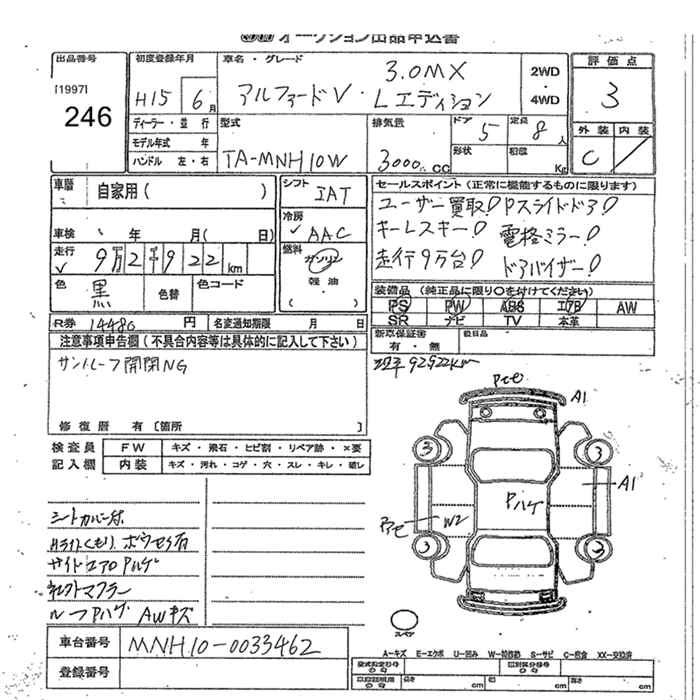 オークション出品申込書
出品番号 初度登録年月 車名・グレード 評価点
[1997] 246 H15 6月 アルファードV・ 3.0MX Lエディション 2WD ・ 4WD 3
ディーラー・並行 型式 排気量 ドア 5 定員 8人 外装 内装
モデル年式 年 形状 C /
ハンドル 左・右 TA-MNH10W 3000 cc Kg
車歴 自家用( ) シフト IAT セールスポイント(正常に機能するものに限ります)
ユーザー買取! Pスライドドア!
車検 年 月( 日) 冷房 AAC キーレスキー! 電格ミラー!
走行 9万2千922km 燃料 ガソリン 軽油 ( ) 走行9万台! ドアバイザー!
色 黒 色替 色コード 装備品 (純正品に限り○を付けてください)
PS PW ABS エアB AW
R券 14480円 名変通知期限 月 日 SR ナビ TV 本革
注意事項申告欄(不具合内容等は具体的に記入して下さい) 新車保証書 有・無 後日品
サンルーフ開閉NG 92922km
修復歴 有〔箇所 〕
検査員 FW キズ・飛石・ヒビ割・リペア跡・×要
記入欄 内装 キズ・汚れ・コゲ・穴・スレ・キレ・破レ
A1
3 3
A1
Pハゲ
W2
3 2
シートカバー
Hライトくもり、
サイドエアロPハゲ
マフラー
ルーフPハゲ AWキズ
スペア
車台番号 MNH10-0033462
A-キズ E-エクボ U-凹み W-補修跡 S-サビ C-腐食 XX-交換済
登録番号 長さ cm 幅 cm 高さ cm